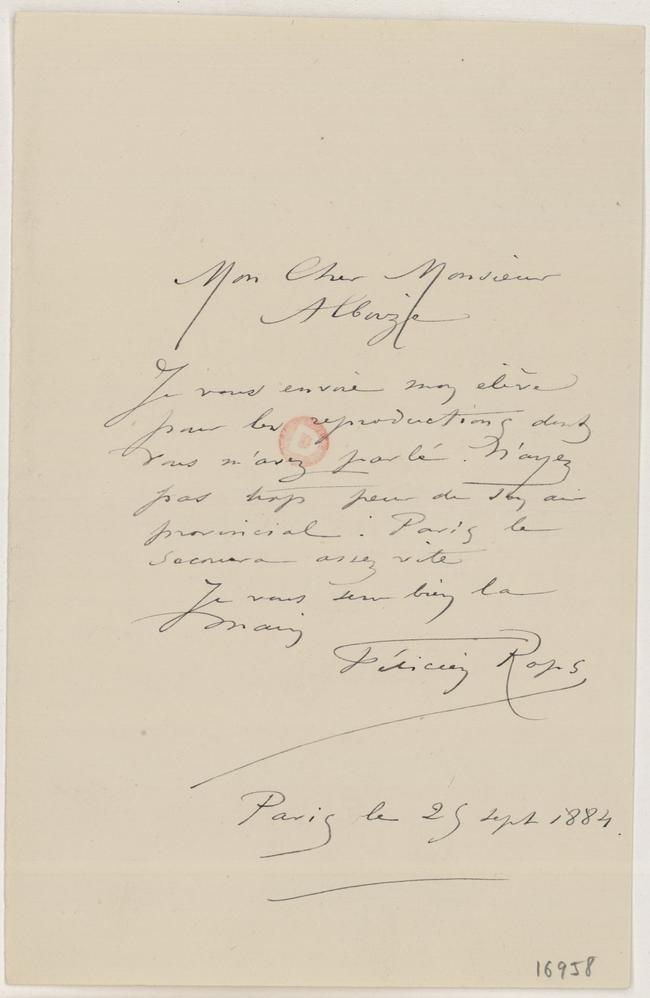 Mon Cher Monsieur
Albouze
Je vous envoie mon élève
pour les reproductions dont
vous m'avez parlé. N'ayez
pas trop peur de son air
provincial : Paris le
secouera assez vite
Je vous serre bien la
main
Félicien Rops
Paris le 25 sept 1884.
16958